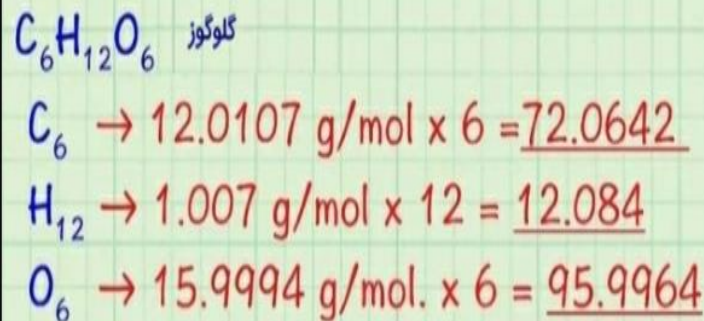 C₆H₁₂O₆ گلوگوز
C₆ → 12.0107 g/mol x 6 =72.0642
H₁₂ → 1.007 g/mol x 12 = 12.084
O₆ → 15.9994 g/mol. x 6 = 95.9964